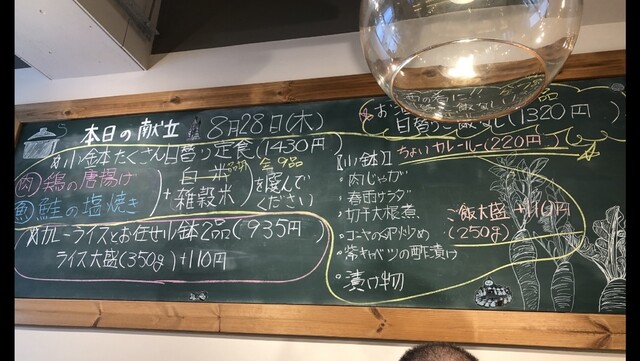 本日の献立 8月28日(木)
小鉢たくさん日替り定食(1430円)
全9品
肉 鶏の唐揚げ
魚 鮭の塩焼き
+ 白米 雑穀米 を選んで
ください
カレーライスとお任せ小鉢2品(935円)
ライス大盛(350g)+110円
日替り(1320円)
ちょいカレールー(220円)
【小鉢】
・肉じゃが
・春雨サラダ
・切干大根煮
・ゴーヤの卵炒め
・紫キャベツの酢漬け
・漬け物
ご飯大盛+110円
(250g)